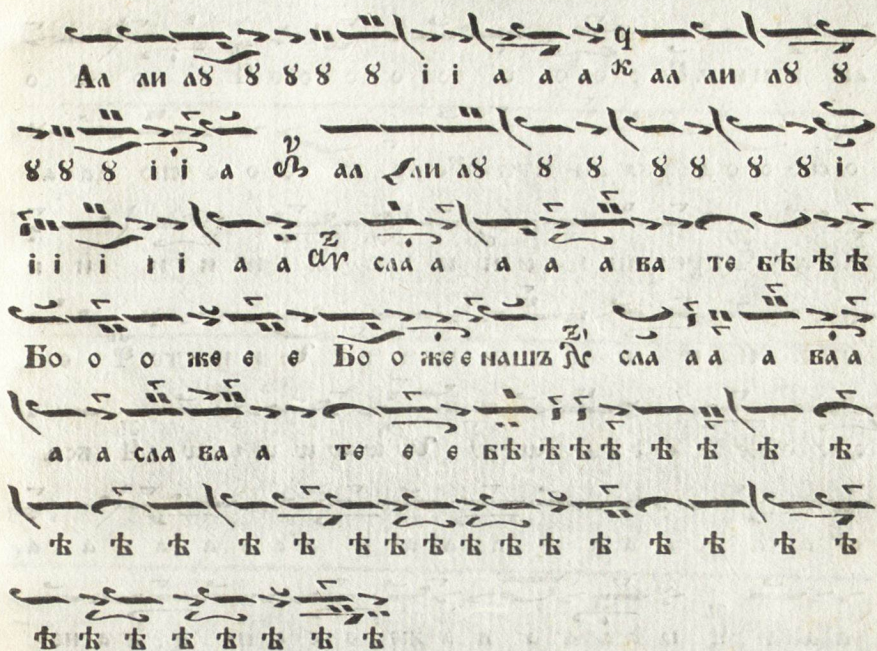 Ал ли лꙋ ꙋ ꙋ ꙋ ꙋ і і а а а ал ли лꙋ ꙋ
ꙋ ꙋ ꙋ і і а ал ли лꙋ ꙋ ꙋ ꙋ ꙋ ꙋ і
і і і і і а а сла а а а а ва те бѣ ѣ ѣ
Бо о о же е е Бо о же е нашъ сла а а а ва а
а а сла ва а те е е бѣ ѣ ѣ ѣ ѣ ѣ ѣ ѣ
ѣ ѣ ѣ ѣ ѣ ѣ ѣ ѣ ѣ ѣ ѣ ѣ ѣ ѣ ѣ
ѣ ѣ ѣ ѣ ѣ ѣ ѣ ѣ